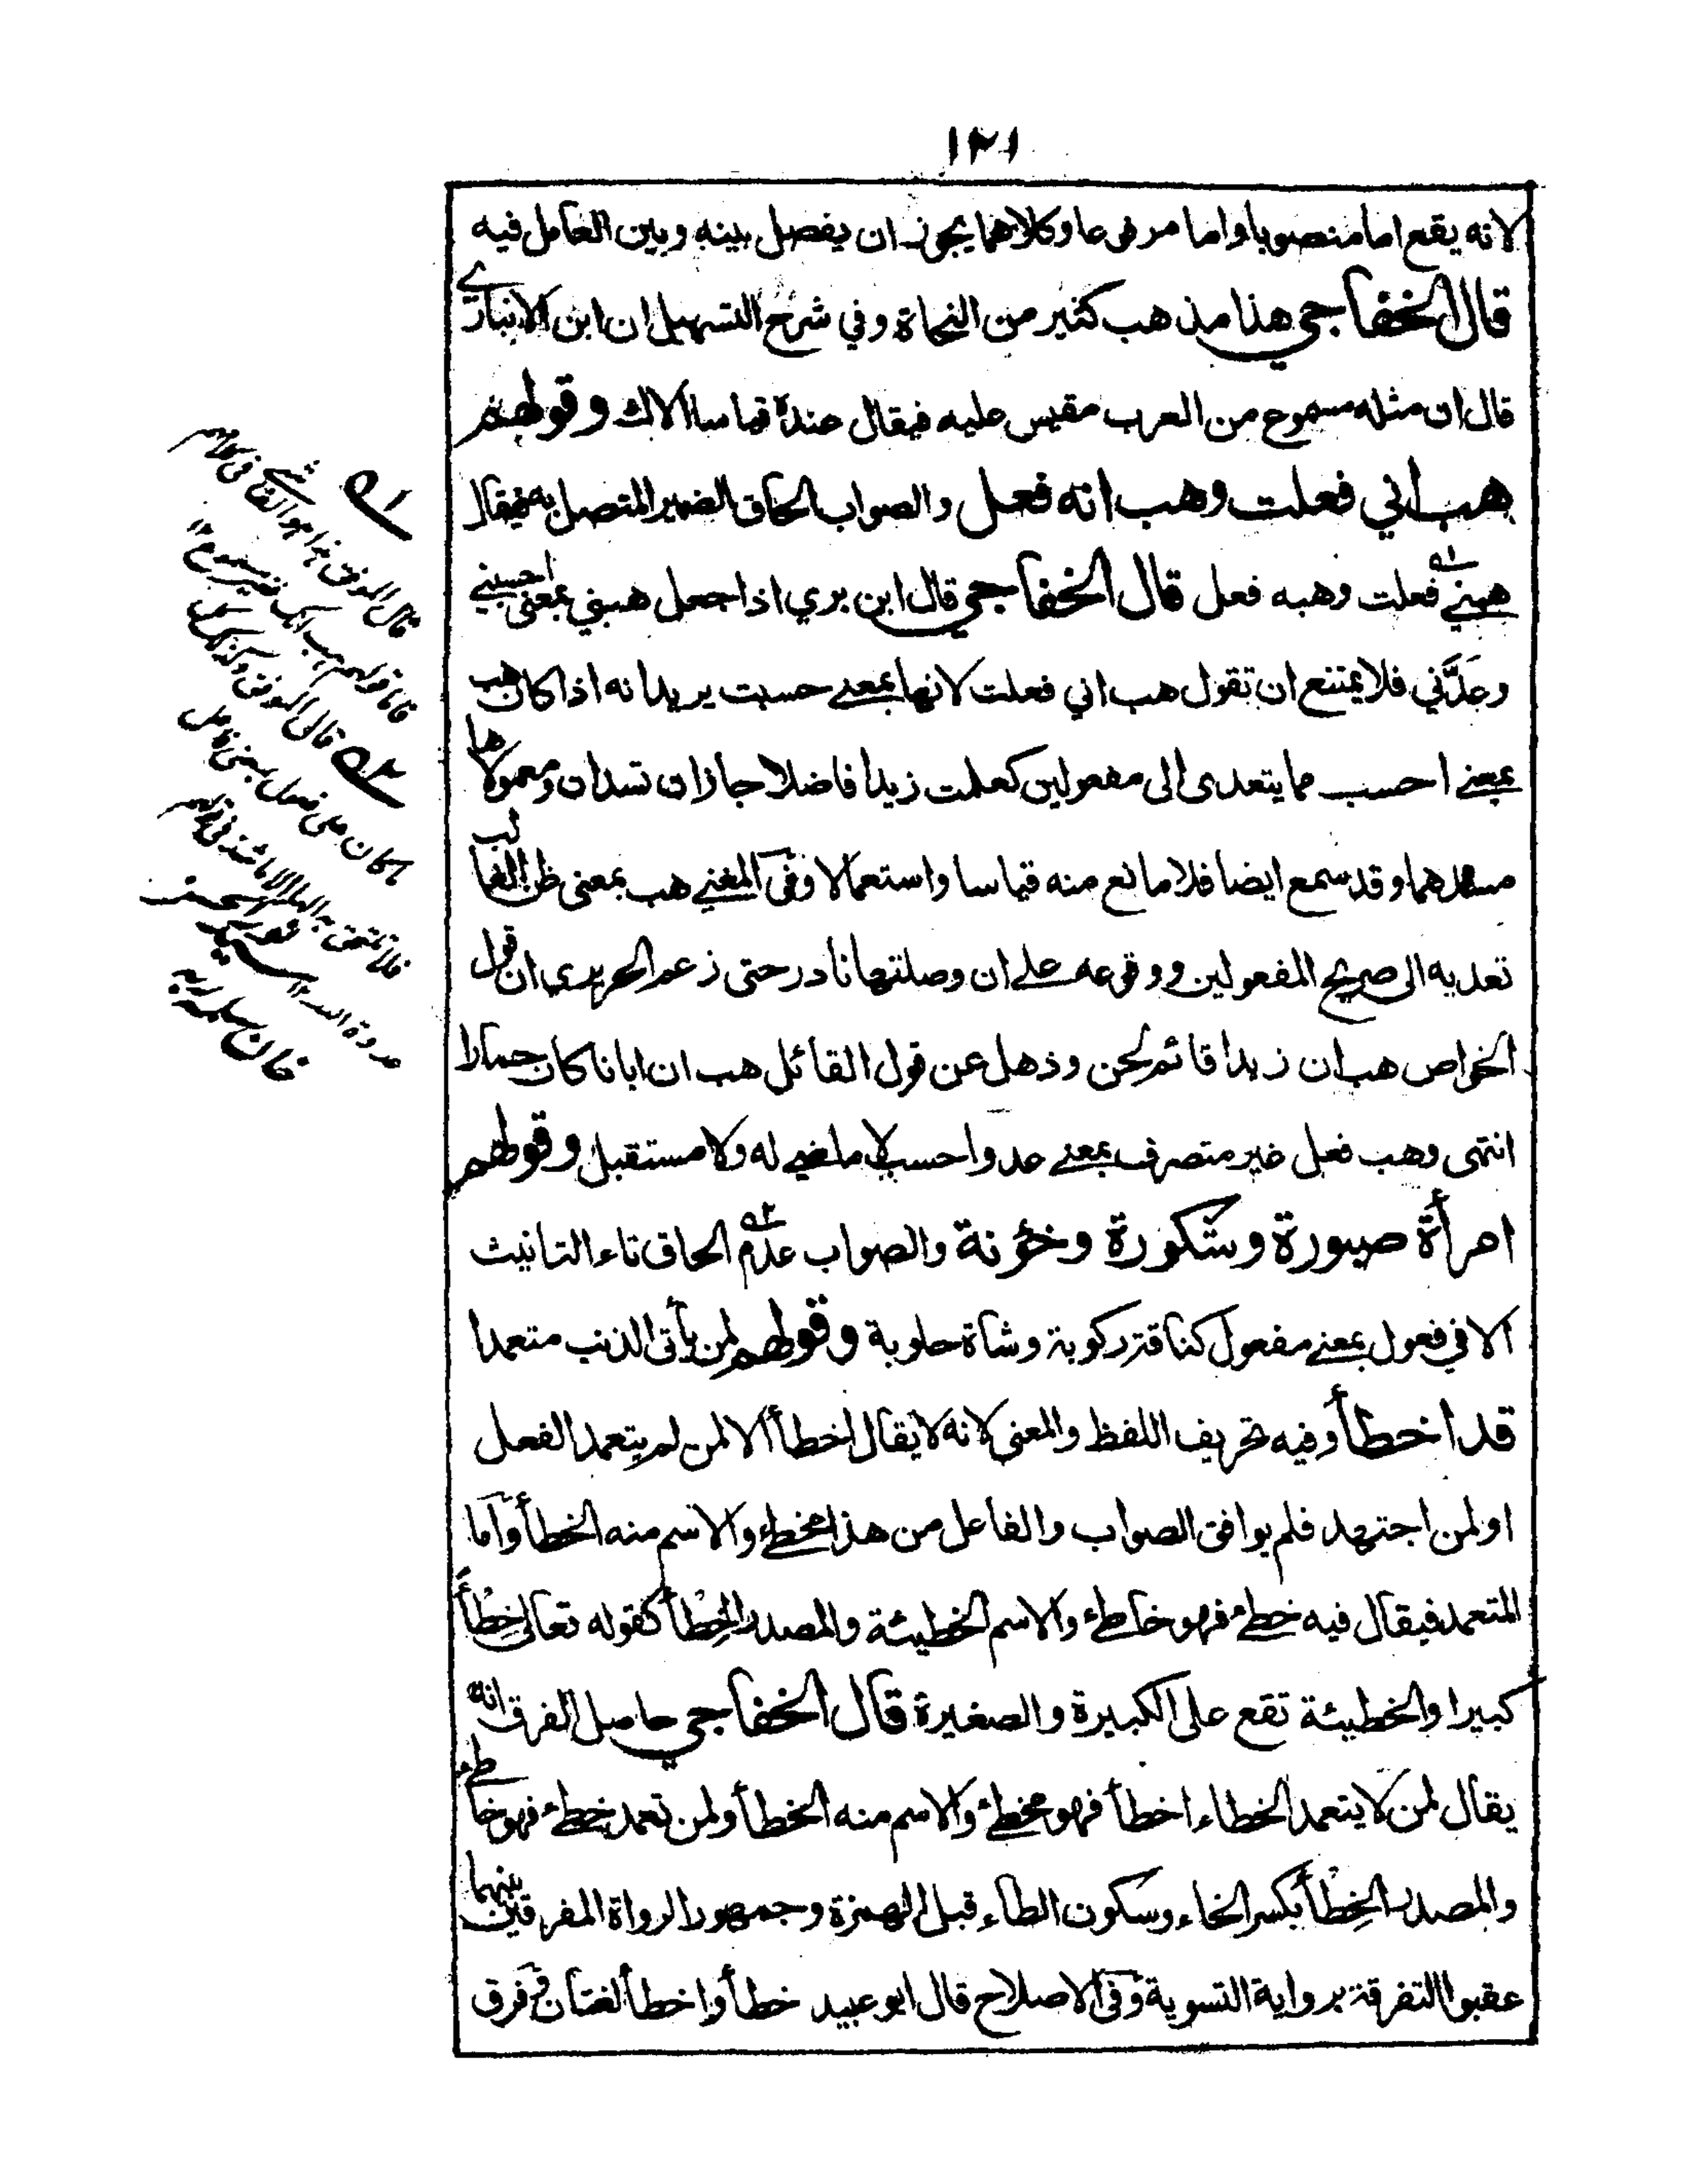 ١٢١
لانه يقع اما منصوبا واما مرفوعا وكلاهما يجوز ان يفصل بينه وبين العامل فيه
قال الخفاجي هذا مذهب كثير من النحاة وفي شرح التسهيل ان ابن الانباري
قال ان مثله مسموع من العرب مقيس عليه فيقال عنده قياسا الاك وقولهم
هب اني فعلت وهب انه فعل والصواب الحاق الضمير المتصل به فيقال
هبني فعلت وهبه فعل قال الخفاجي قال ابن بري اذا جعل هبني بمعنى احسبني
وعدَّني فلا يمتنع ان تقول هب اني فعلت لانها بمعنى حسبت يريد انه اذا كان هب
بمعنى احسب مما يتعدى الى مفعولين كعلمت زيدا فاضلا جاز ان تسد ان ومعمولاها
مسدهما وقد سمع ايضا فلا مانع منه قياسا واستعمالا وفي المغني هب بمعنى ظن الغالب
تعديه الى صريح المفعولين ووقوعه على ان وصلتها نادر حتى زعم الحريري ان قول
الخواص هب ان زيدا قائم لحن وذهل عن قول القائل هب ان ابانا كان حمارا
انتهى وهب فعل غير متصرف بمعنى عد واحسب لا ماضي له ولا مستقبل وقولهم
امرأة صبورة وشكورة وخؤنة والصواب عدم الحاق تاء التانيث
الا في فعول بمعنى مفعول كناقة ركوبة وشاة حلوبة وقولهم لمن يأتى الذنب متعمدا
قد اخطأ وفيه تحريف اللفظ والمعنى لانه لا يقال اخطأ الا لمن لم يتعمد الفعل
اولمن اجتهد فلم يوافق الصواب والفاعل من هذا مخطئ والاسم منه الخطأ وأما
المتعمد فيقال فيه خطئ فهو خاطئ والاسم الخطيئة والمصدر الخِطْأ كقوله تعالى خِطْأً
كبيرا والخطيئة تقع على الكبيرة والصغيرة قال الخفاجي حاصل الفرق انه
يقال لمن لا يتعمد الخطاء اخطأ فهو مخطئ والاسم منه الخطأ ولمن تعمد خطئ فهو خاطئ
والمصدر الخِطْأ بكسر الخاء وسكون الطاء قبل الهمزة وجمهور الرواة المفرقين بينهما
عقبوا التفرقة برواية التسوية وفي الاصلاح قال ابو عبيد خطأ واخطأ لغتان وفرق